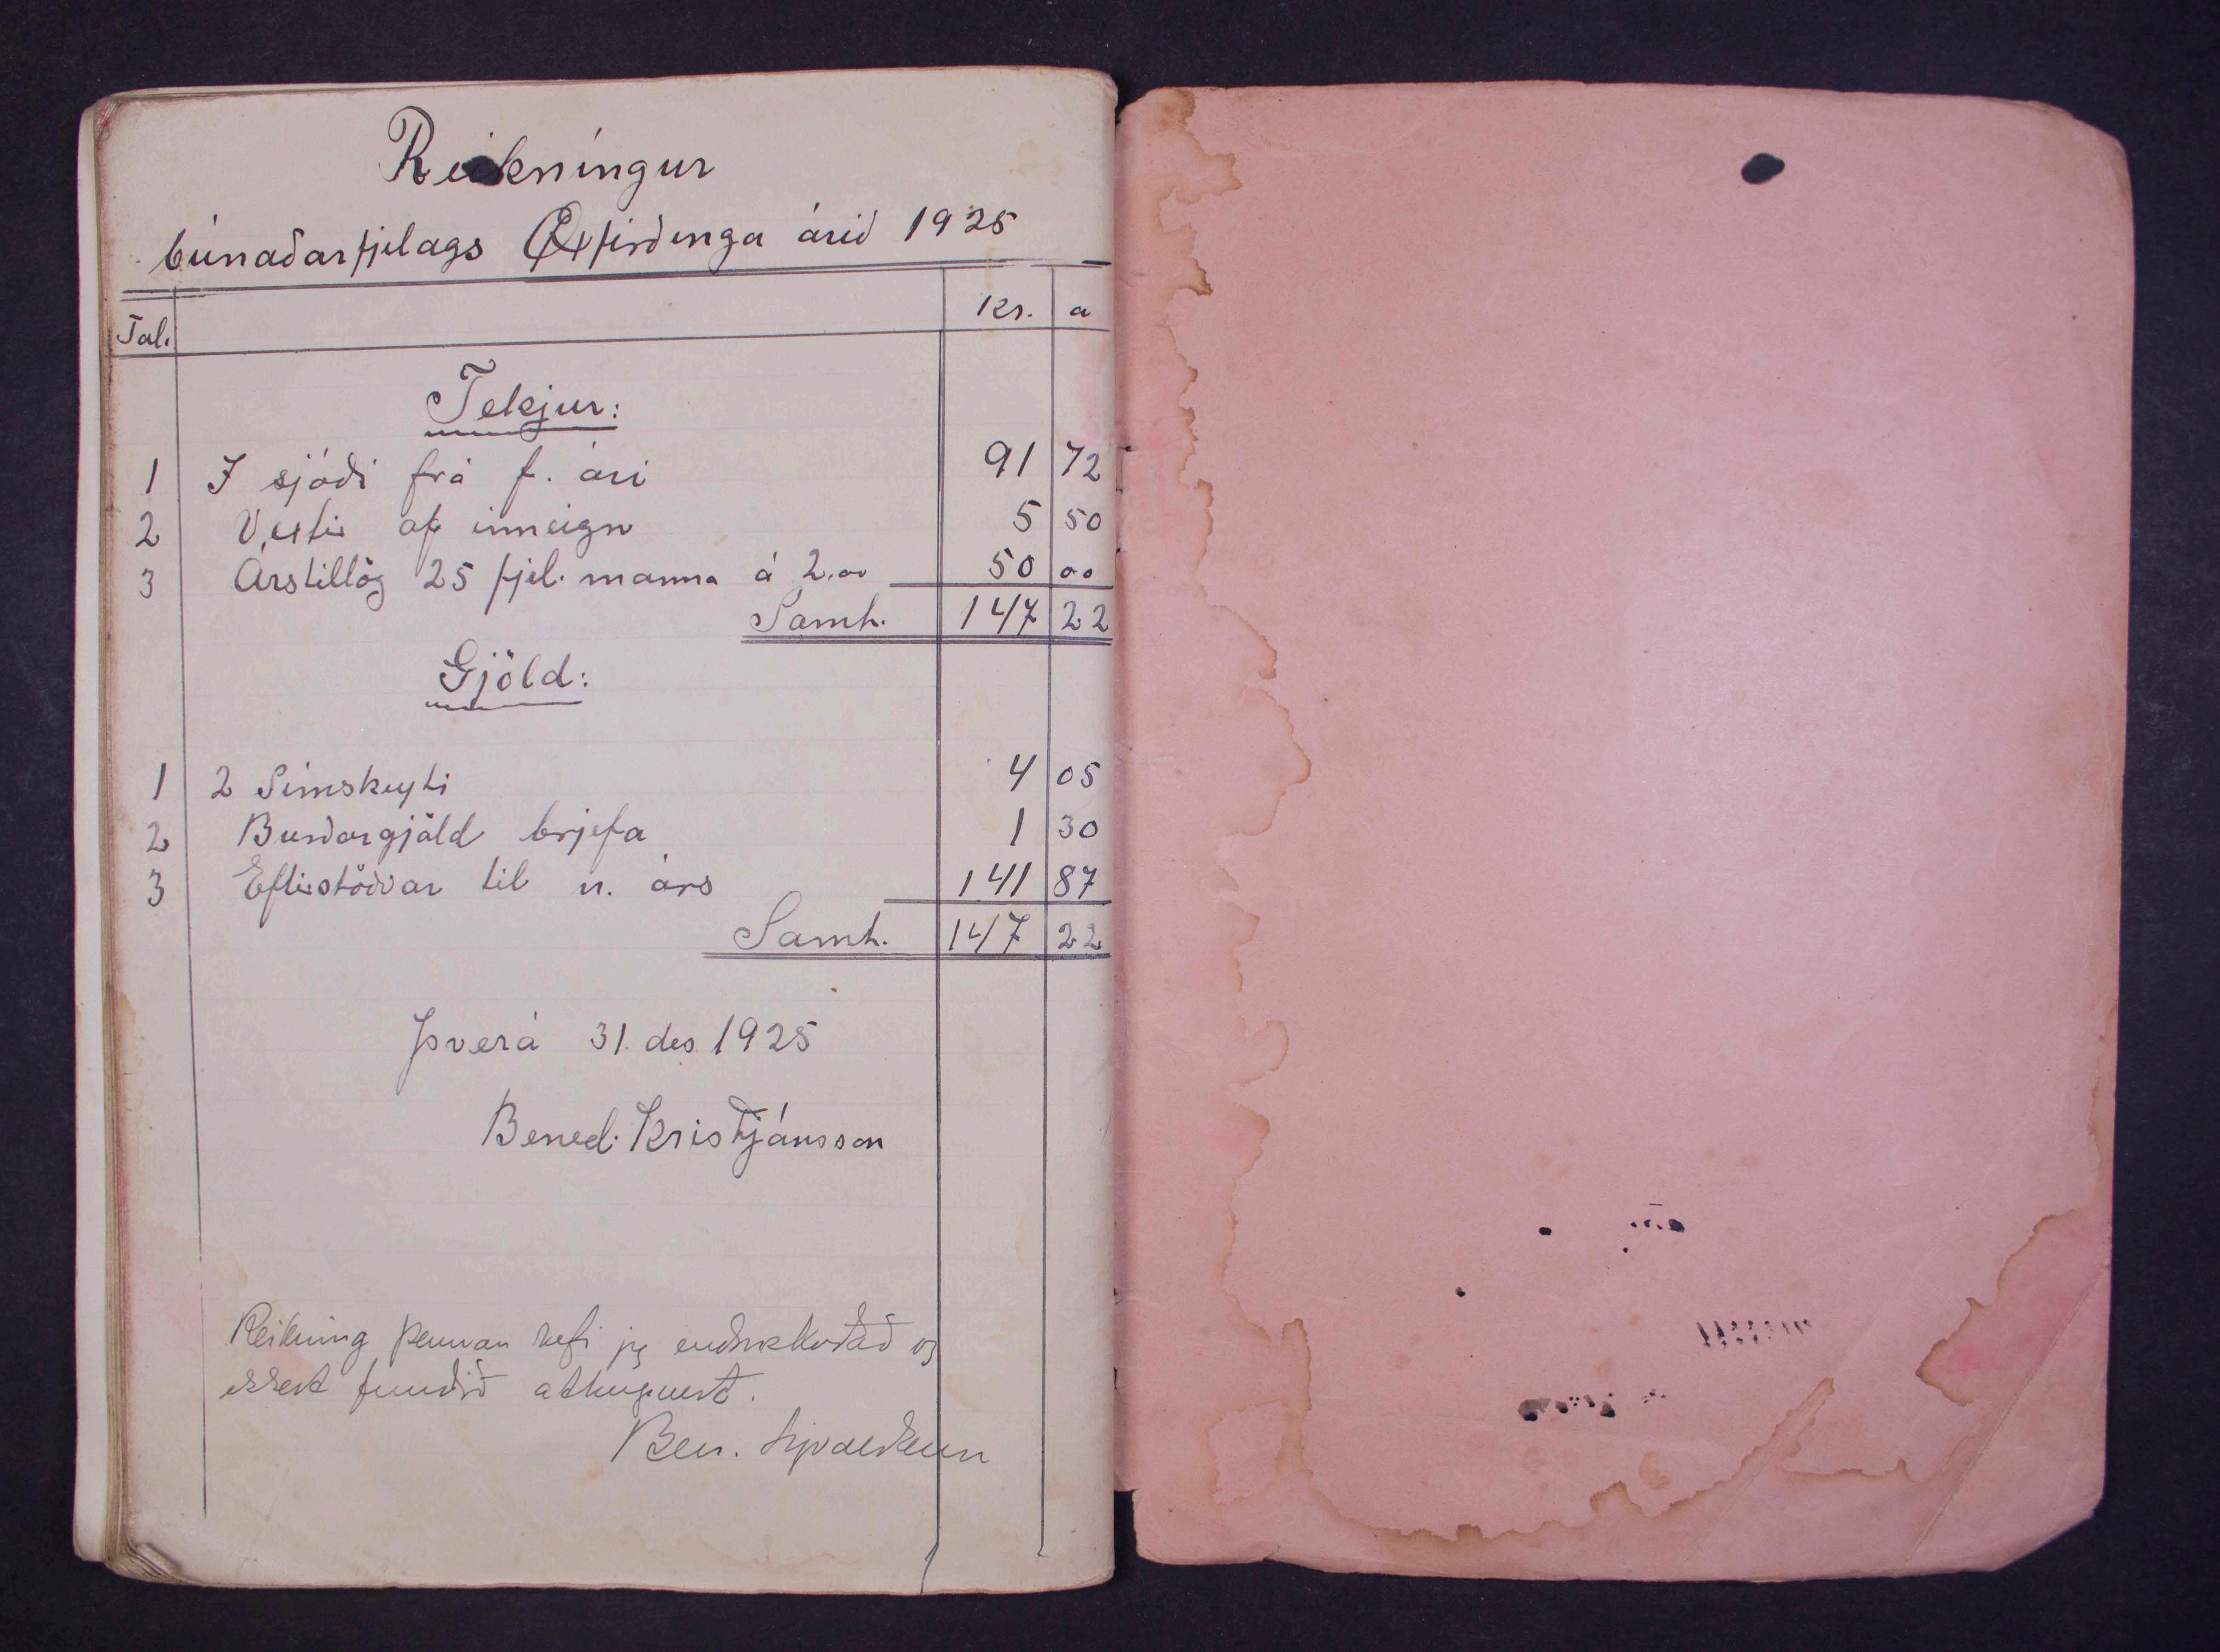 Reikníngur
búnaðarfjelags Öxfirðinga árið 1925
Tal. Kr. a
Tekjur:
1 I sjóði frá f. ári 91 72
2 Vextir af inneign 5 50
3 Árstillög 25 fjel. manna á 2.00 50 00
Samh. 147 22
Gjöld:
1 2 Símskeyti 4 05
2 Burðargjöld brjefa 1 30
3 Eftirstöðvar til n. árs 141 87
Samh. 147 22
Þverá 31. des 1925
Bened. Kristjánsson
Reikning þennan hefi jeg endurskoðað og
ekkert fundið athugavert.
Ben.